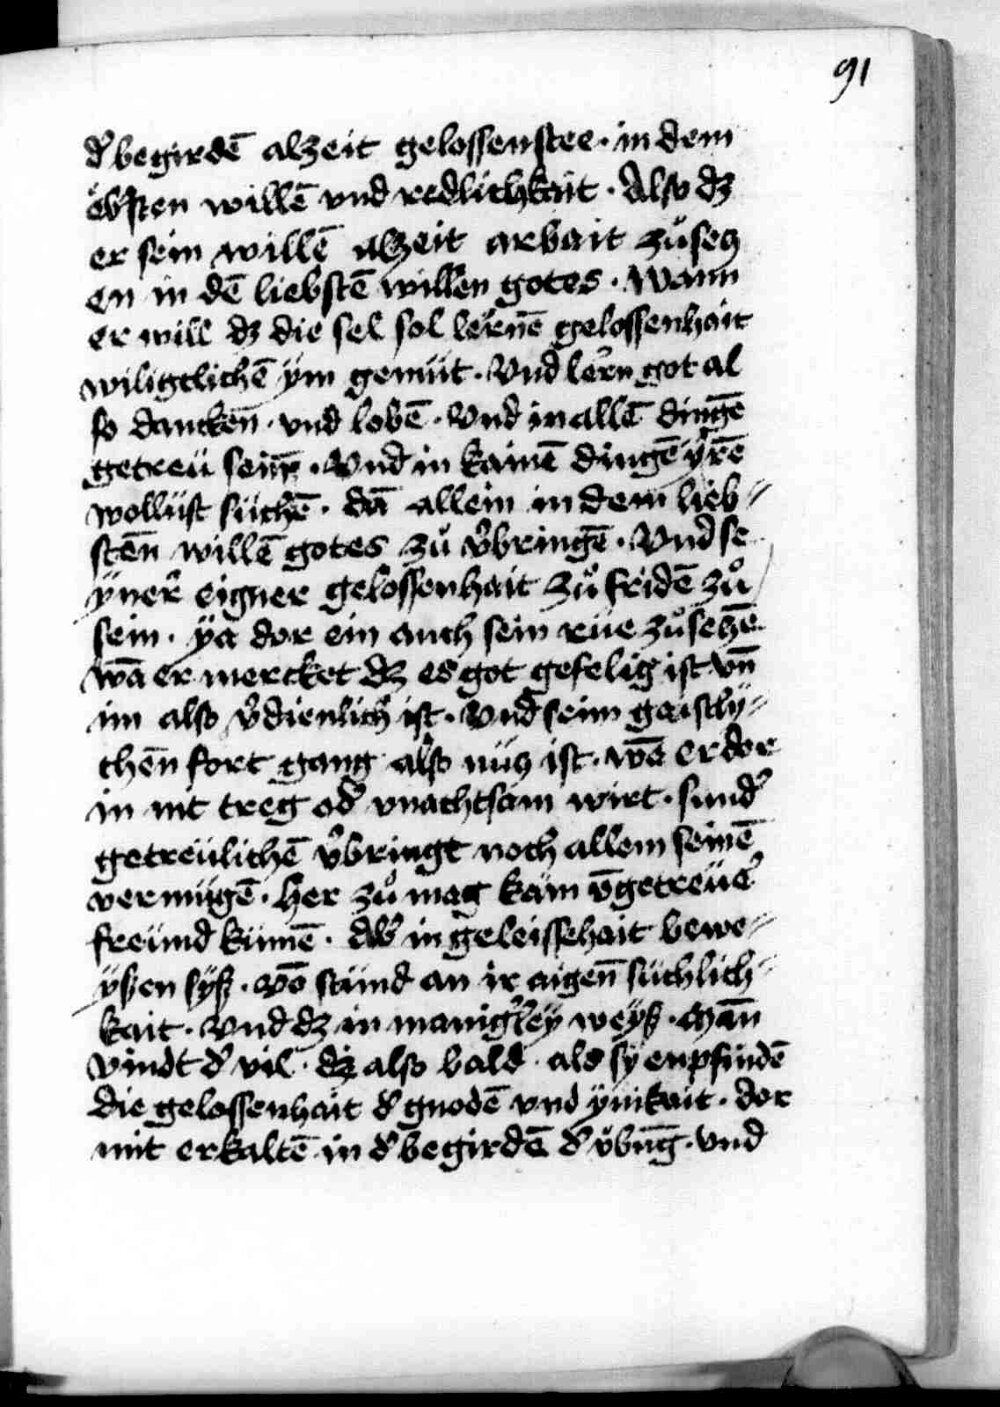 91
d᷑ begirdē alzeit gelossen stee · in dem
öb᷑sten willē vnd redlichkait · Also dz
er sein willē alzeit arbait zů secz
en in dē liebstē willen gotes · Wann
er will dz die sel sol lernē gelossenhait
wiligklichē ym gemüt · Vnd lern got al
so dancken · vnd lobē · Vnd in allē dingē
getreü sein · Vnd in kainē dingē yrē
wollüst süchē · dā allein in dem lieb〃
stēn willē gotes zů v᷑bringē · Vnd se
yner eigner gelossenhait zů fridē zů
sein · ya dor ein auch sein rüe zů seczē
wā er mercket dz es got gefelig ist vn̄
im also v᷑dienlich ist · Vnd seim geistly〃
chēn fort gang also nücz ist · wē er dor
in nit treg od᷑ vnachtsam wirt · sund᷑
getreülichē v᷑bringt noch allem seinē
vermügē · her zů mag kam v̄getreüe᷑
freünd kümē · dÿ in geleissehait bewe〃
ysen sÿß · vō stünd an ir aigen̄ süchlich〃
kait · Vnd dz in manig᷑leÿ weÿß · Man̄
vindt d᷑ vil · dz also bald · als sy enpfindē
die gelossenhait d᷑ gnodē vnd ynikait · dor
mit erkaltē in d᷑ begirdē d᷑ v̈bu̅g · vnd